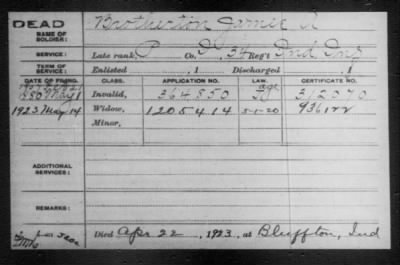 DEAD
NAME OF SOLDIER: Brotherton James A
SERVICE: Late rank P Co. D, 34 Reg't Ind Inf
TERM OF SERVICE: Enlisted , 1 Discharged , 1
DATE OF FILING. CLASS. APPLICATION NO. LAW. CERTIFICATE NO.
1880 May 1 Invalid, 364,850 age 312070
1923 May 14 Widow, 1205414 5-1-20 936122
Minor,
ADDITIONAL SERVICES:
REMARKS:
Died Apr 22, 1923, at Bluffton, Ind